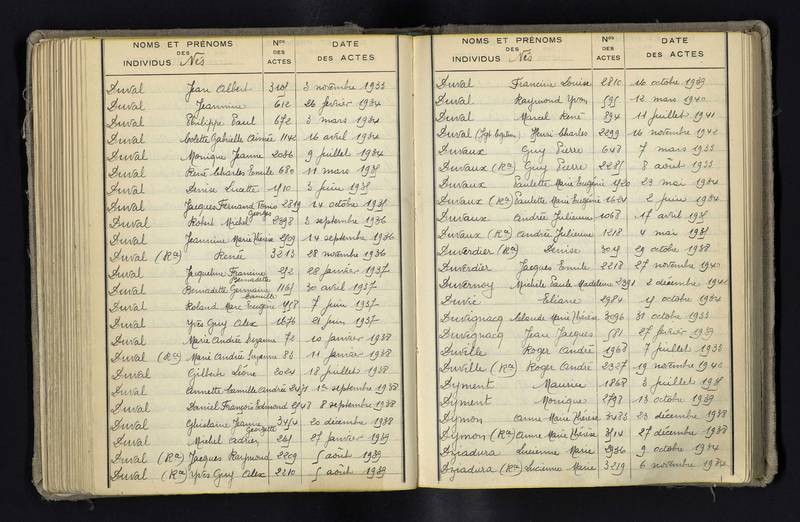 NOMS ET PRÉNOMS DES INDIVIDUS Nés Nos DES ACTES DATE DES ACTES
Duval Jean Albert 3 novembre 1933
Duval Jeannine 612 26 février 1934
Duval Philippe Paul 672 3 mars 1934
Duval Colette Gabrielle Aimée 1142 16 avril 1934
Duval Monique Jeanne 2086 9 juillet 1934
Duval René Charles Emile 680 11 mars 1935
Duval Denise Lucette 3 juin 1935
Duval Jacques Fernand 2819 14 octobre 1935
Duval Robert Michel Georges 2398 2 septembre 1936
Duval Jeannine Marie Thérèse 14 septembre 1936
Duval (Ra) Renée 3213 28 novembre 1936
Duval Jacqueline Francine 28 janvier 1937
Duval Bernadette Germaine Bernadette 30 avril 1937
Duval Roland Marc Eugène Camille 7 juin 1937
Duval Yves Guy Alex 1676 21 juin 1937
Duval Marie Andrée Suzanne 72 10 janvier 1938
Duval (Ra) Marie Andrée Suzanne 83 11 janvier 1938
Duval Gilberte Léone 2021 18 juillet 1938
Duval Annette Camille Andrée 1er septembre 1938
Duval Daniel François Edmond 8 septembre 1938
Duval Ghislaine Jeanne 20 décembre 1938
Duval Michel Georgette 27 janvier 1939
Duval (Ra) Jacques Raymond 2209 5 août 1939
Duval (Ra) Yves Guy Alex 2210 5 août 1939
NOMS ET PRÉNOMS DES INDIVIDUS Nés Nos DES ACTES DATE DES ACTES
Duval Francine Louise 2810 16 octobre 1939
Duval Raymond Yvon 595 12 mars 1940
Duval Marcel René 894 11 juillet 1941
Duval Henri Charles 2299 16 novembre 1942
Duvaux Guy Pierre 648 7 mars 1933
Duvaux (Ra) Guy Pierre 2285 8 août 1933
Duvaux Paulette Marie Eugénie 23 mai 1934
Duvaux (Ra) Paulette Marie Eugénie 1624 2 juin 1934
Duvaux Andrée Julienne 1068 17 avril 1935
Duvaux (Ra) Andrée Julienne 1218 4 mai 1935
Duverdier (Ra) Denise 29 octobre 1938
Duverdier Jacques Emile 2218 27 novembre 1940
Duvernoy Michèle Paule Madeleine 2391 2 décembre 1940
Duvic Eliane 2984 octobre 1934
Duvignacq Claude Marie Thérèse 3096 31 octobre 1933
Duvignacq Jean Jacques 581 27 février 1939
Duville Roger André 1968 7 juillet 1933
Duville (Ra) Roger André 2327 19 novembre 1940
Dyment Maurice 1868 3 juillet 1935
Dyment Monique 2798 13 octobre 1939
Dymon Anne Marie Thérèse 3483 23 décembre 1938
Dymon (Ra) Anne Marie Thérèse 3514 27 décembre 1938
Dziadura Lucienne Marie 2936 9 octobre 1934
Dziadura (Ra) Lucienne Marie 3219 6 novembre 1934